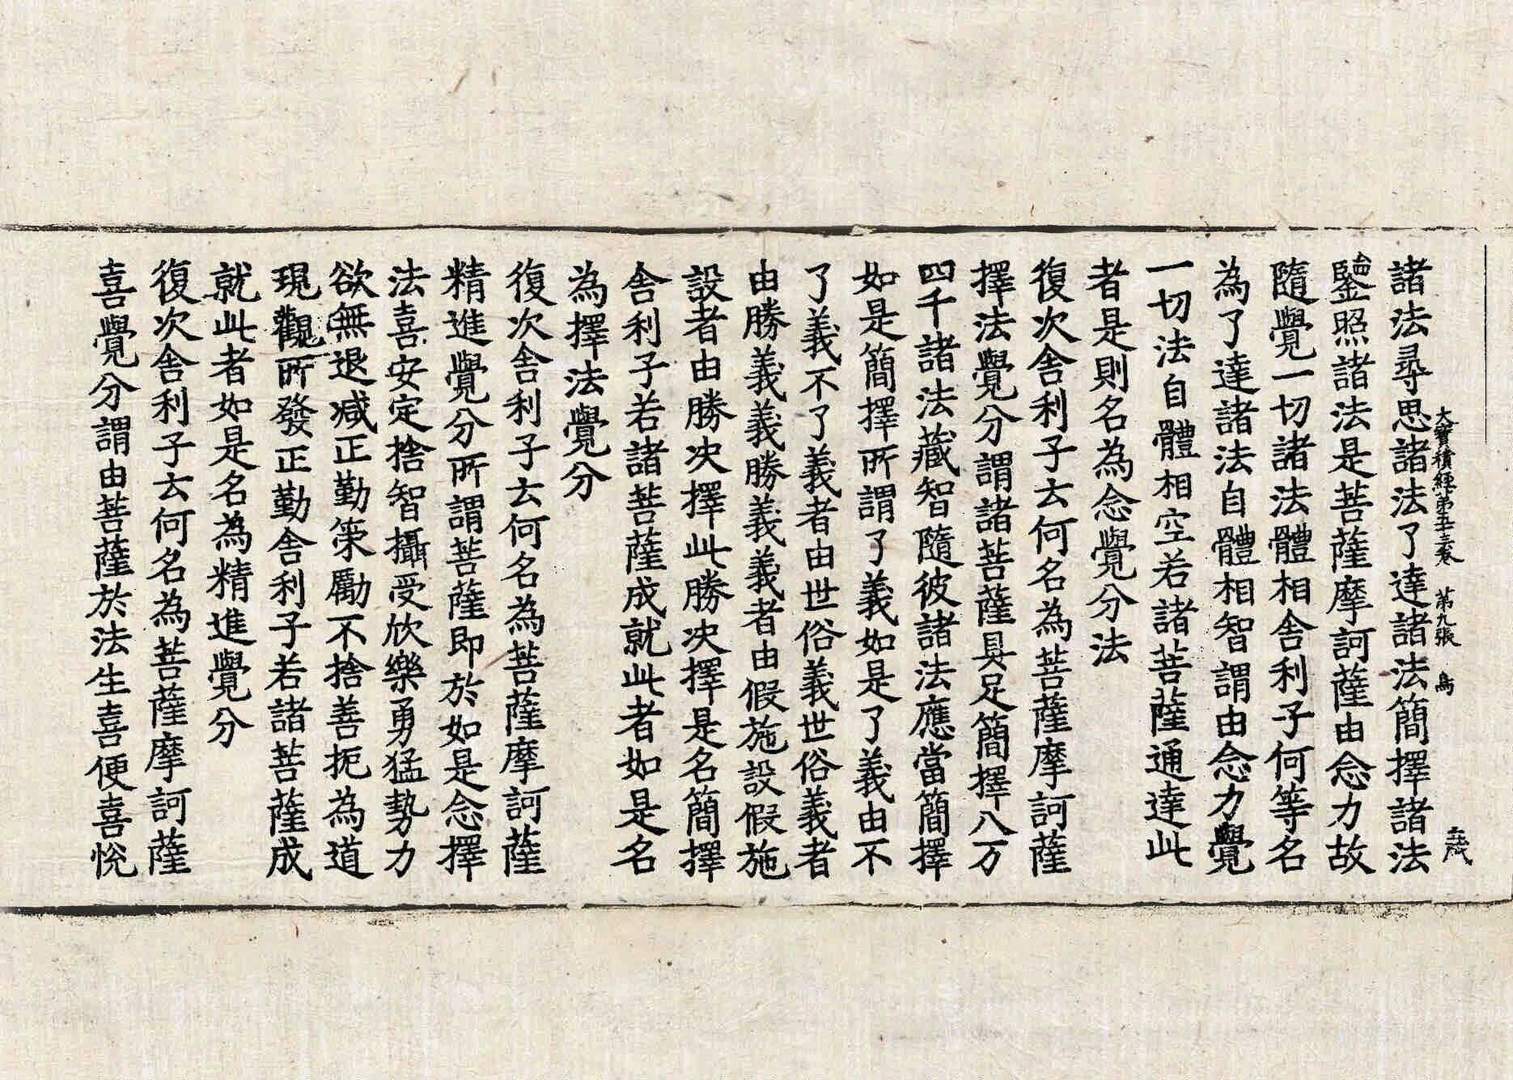 大寶積經第五十三卷 第九張 鳥
諸法尋思諸法了達諸法簡擇諸法
鑒照諸法是菩薩摩訶薩由念力故
隨覺一切諸法體相舍利子何等名
為了達諸法自體相智謂由念力覺
一切法自體相空若諸菩薩通達此
者是則名為念覺分法
復次舍利子云何名為菩薩摩訶薩
擇法覺分謂諸菩薩具足簡擇八万
四千諸法藏智隨彼諸法應當簡擇
如是簡擇所謂了義如是了義由不
了義不了義者由世俗義世俗義者
由勝義義勝義義者由假施設假施
設者由勝决擇此勝决擇是名簡擇
舍利子若諸菩薩成就此者如是名
為擇法覺分
復次舍利子云何名為菩薩摩訶薩
精進覺分所謂菩薩即於如是念擇
法喜安定捨智攝受欣樂勇猛勢力
欲無退减正勤策勵不捨善扼為道
現觀所發正勤舍利子若諸菩薩成
就此者如是名為精進覺分
復次舍利子云何名為菩薩摩訶薩
喜覺分謂由菩薩於法生喜便喜悅